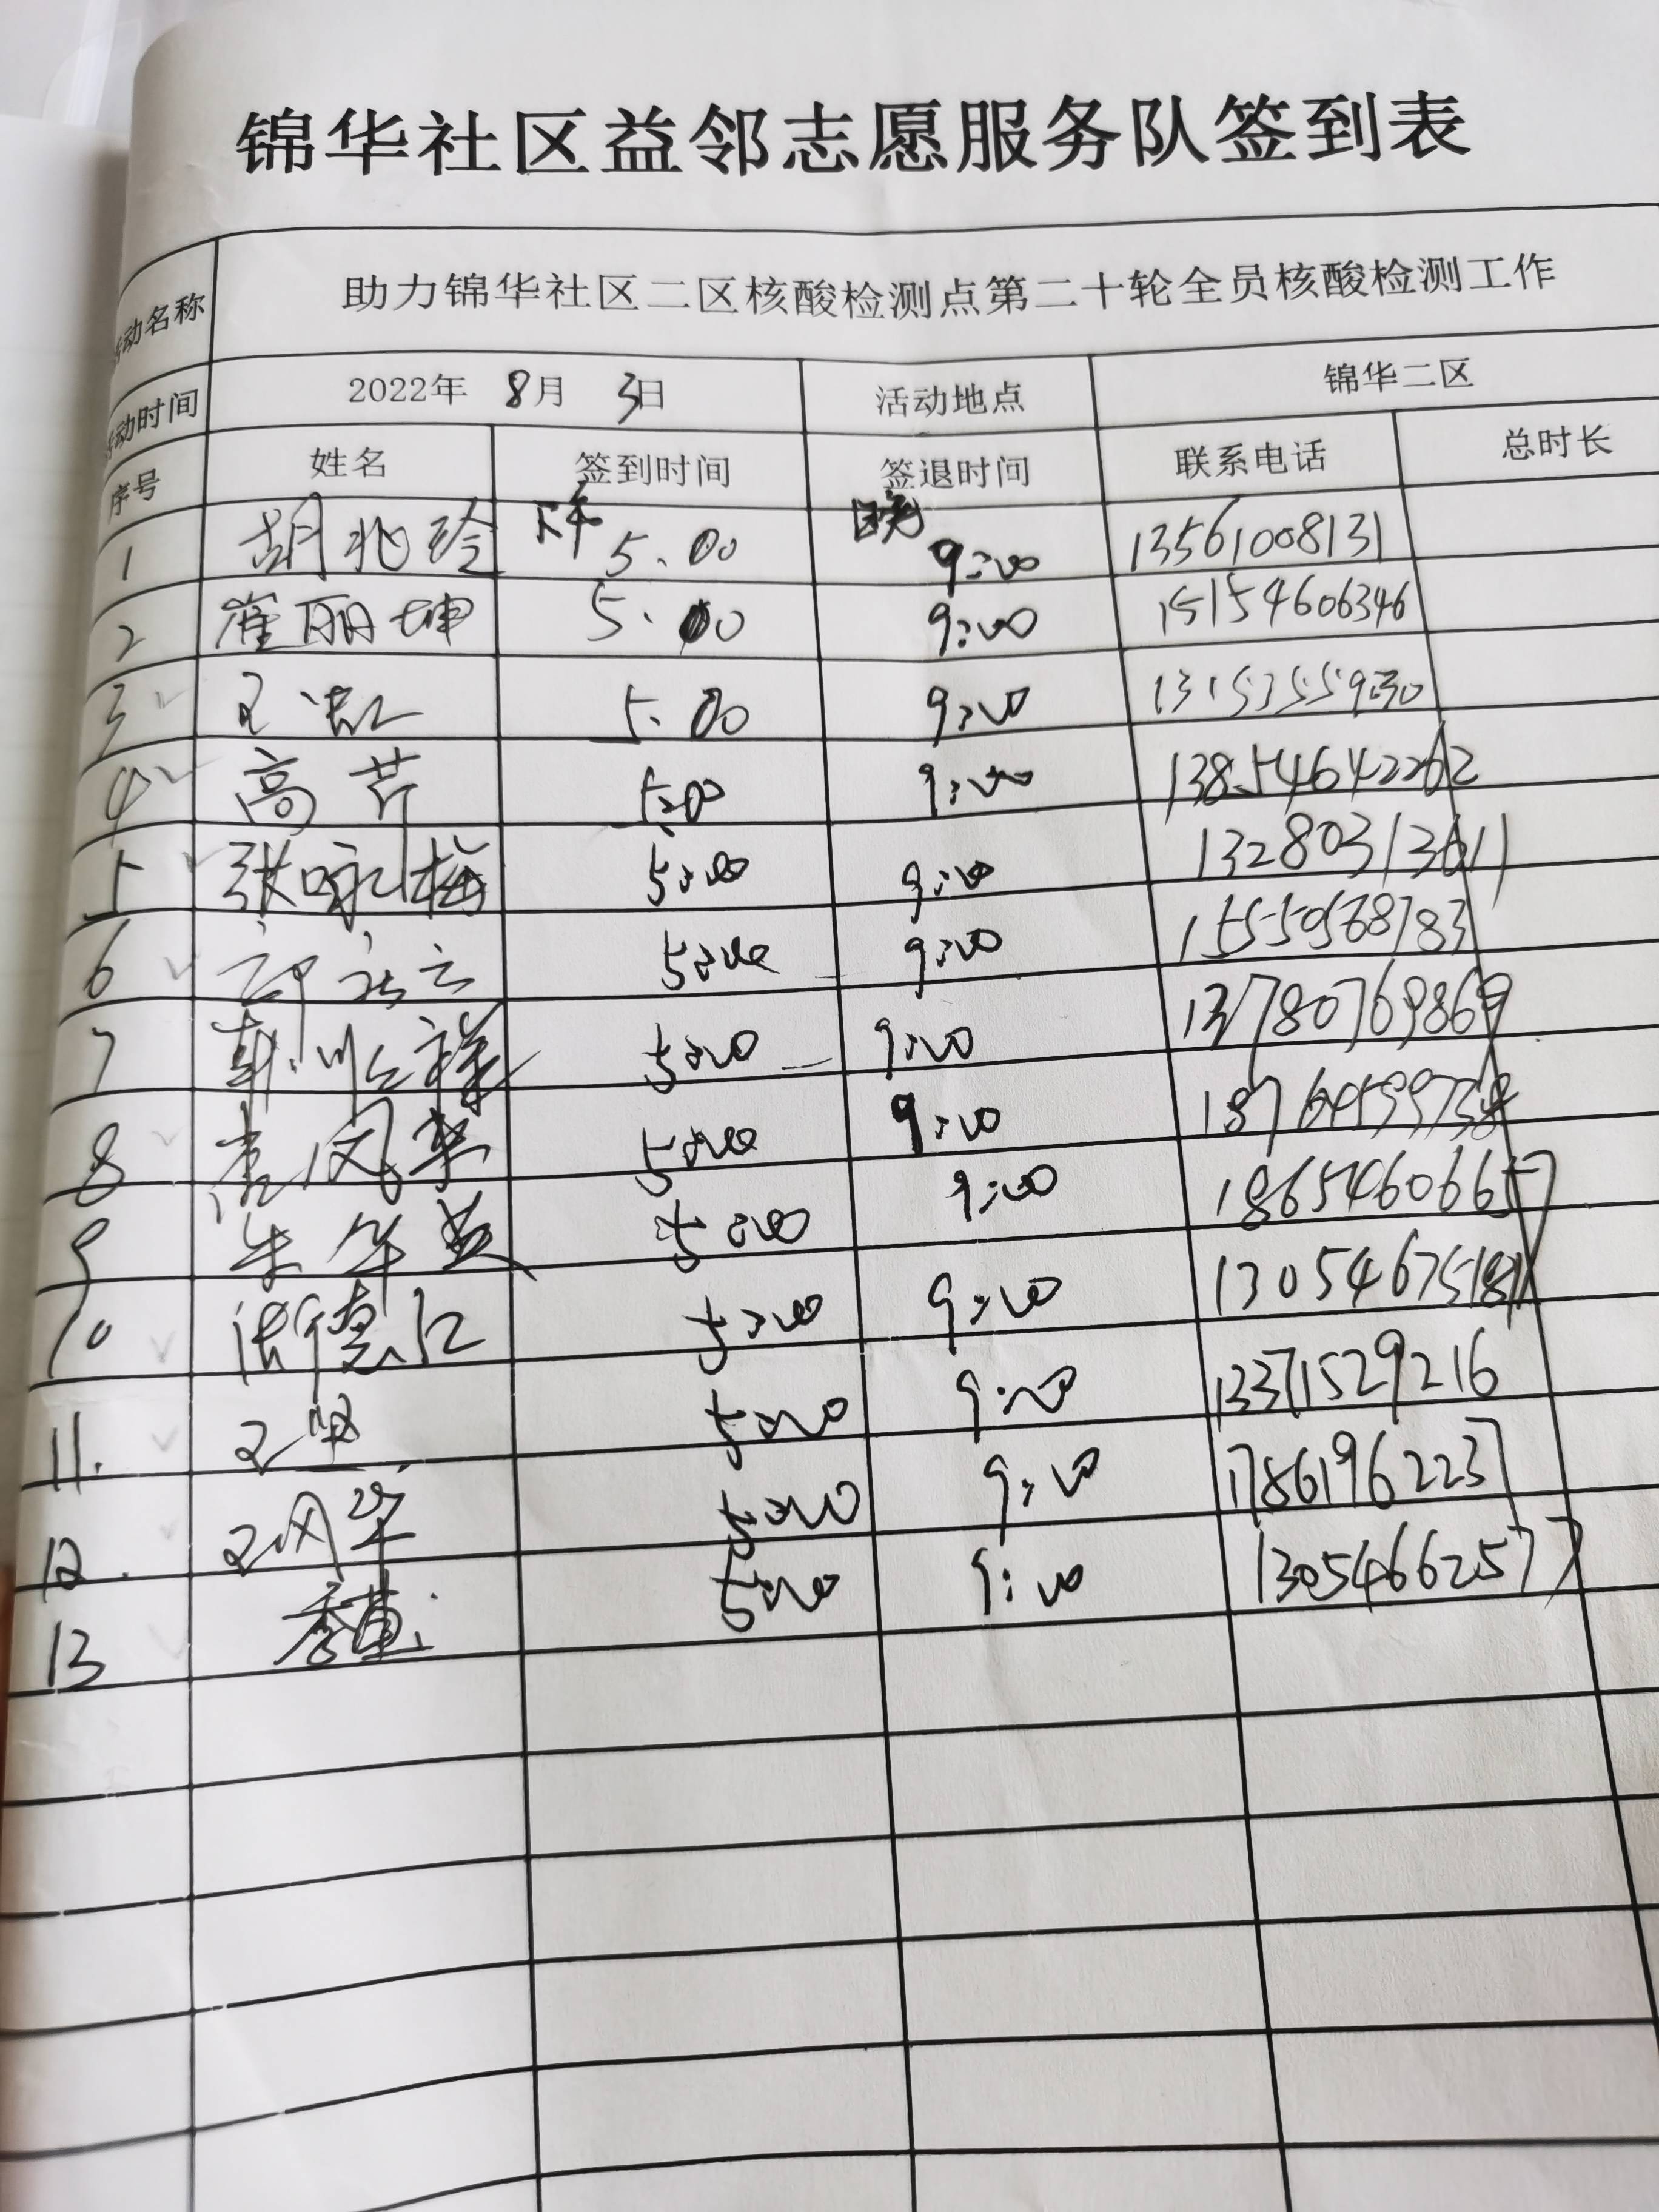 锦华社区益邻志愿服务队签到表
活动名称 助力锦华社区二区核酸检测点第二十轮全员核酸检测工作
活动时间 2022年 8月 3日 活动地点 锦华二区
序号 姓名 签到时间 签退时间 联系电话 总时长
1 胡兆玲 下午 5.00 晚 9:00 13561008131
2 崔丽坤 5.00 9:00 15154606346
3 5.00 9:00 13153559030
4 高芹 5:00 9:00 13854642262
5 张咏梅 5:00 9:00 13280313611
6 5:00 9:00 15550568783
7 5:00 9:00 13780769869
8 5:00 9:00
9 5:00 9:00 18654606657
10 德江 5:00 9:00
11. 王坚 5:00 9:00 13371529216
12. 王风华 5:00 9:00 17861962237
13 5:00 9:00 13054662577